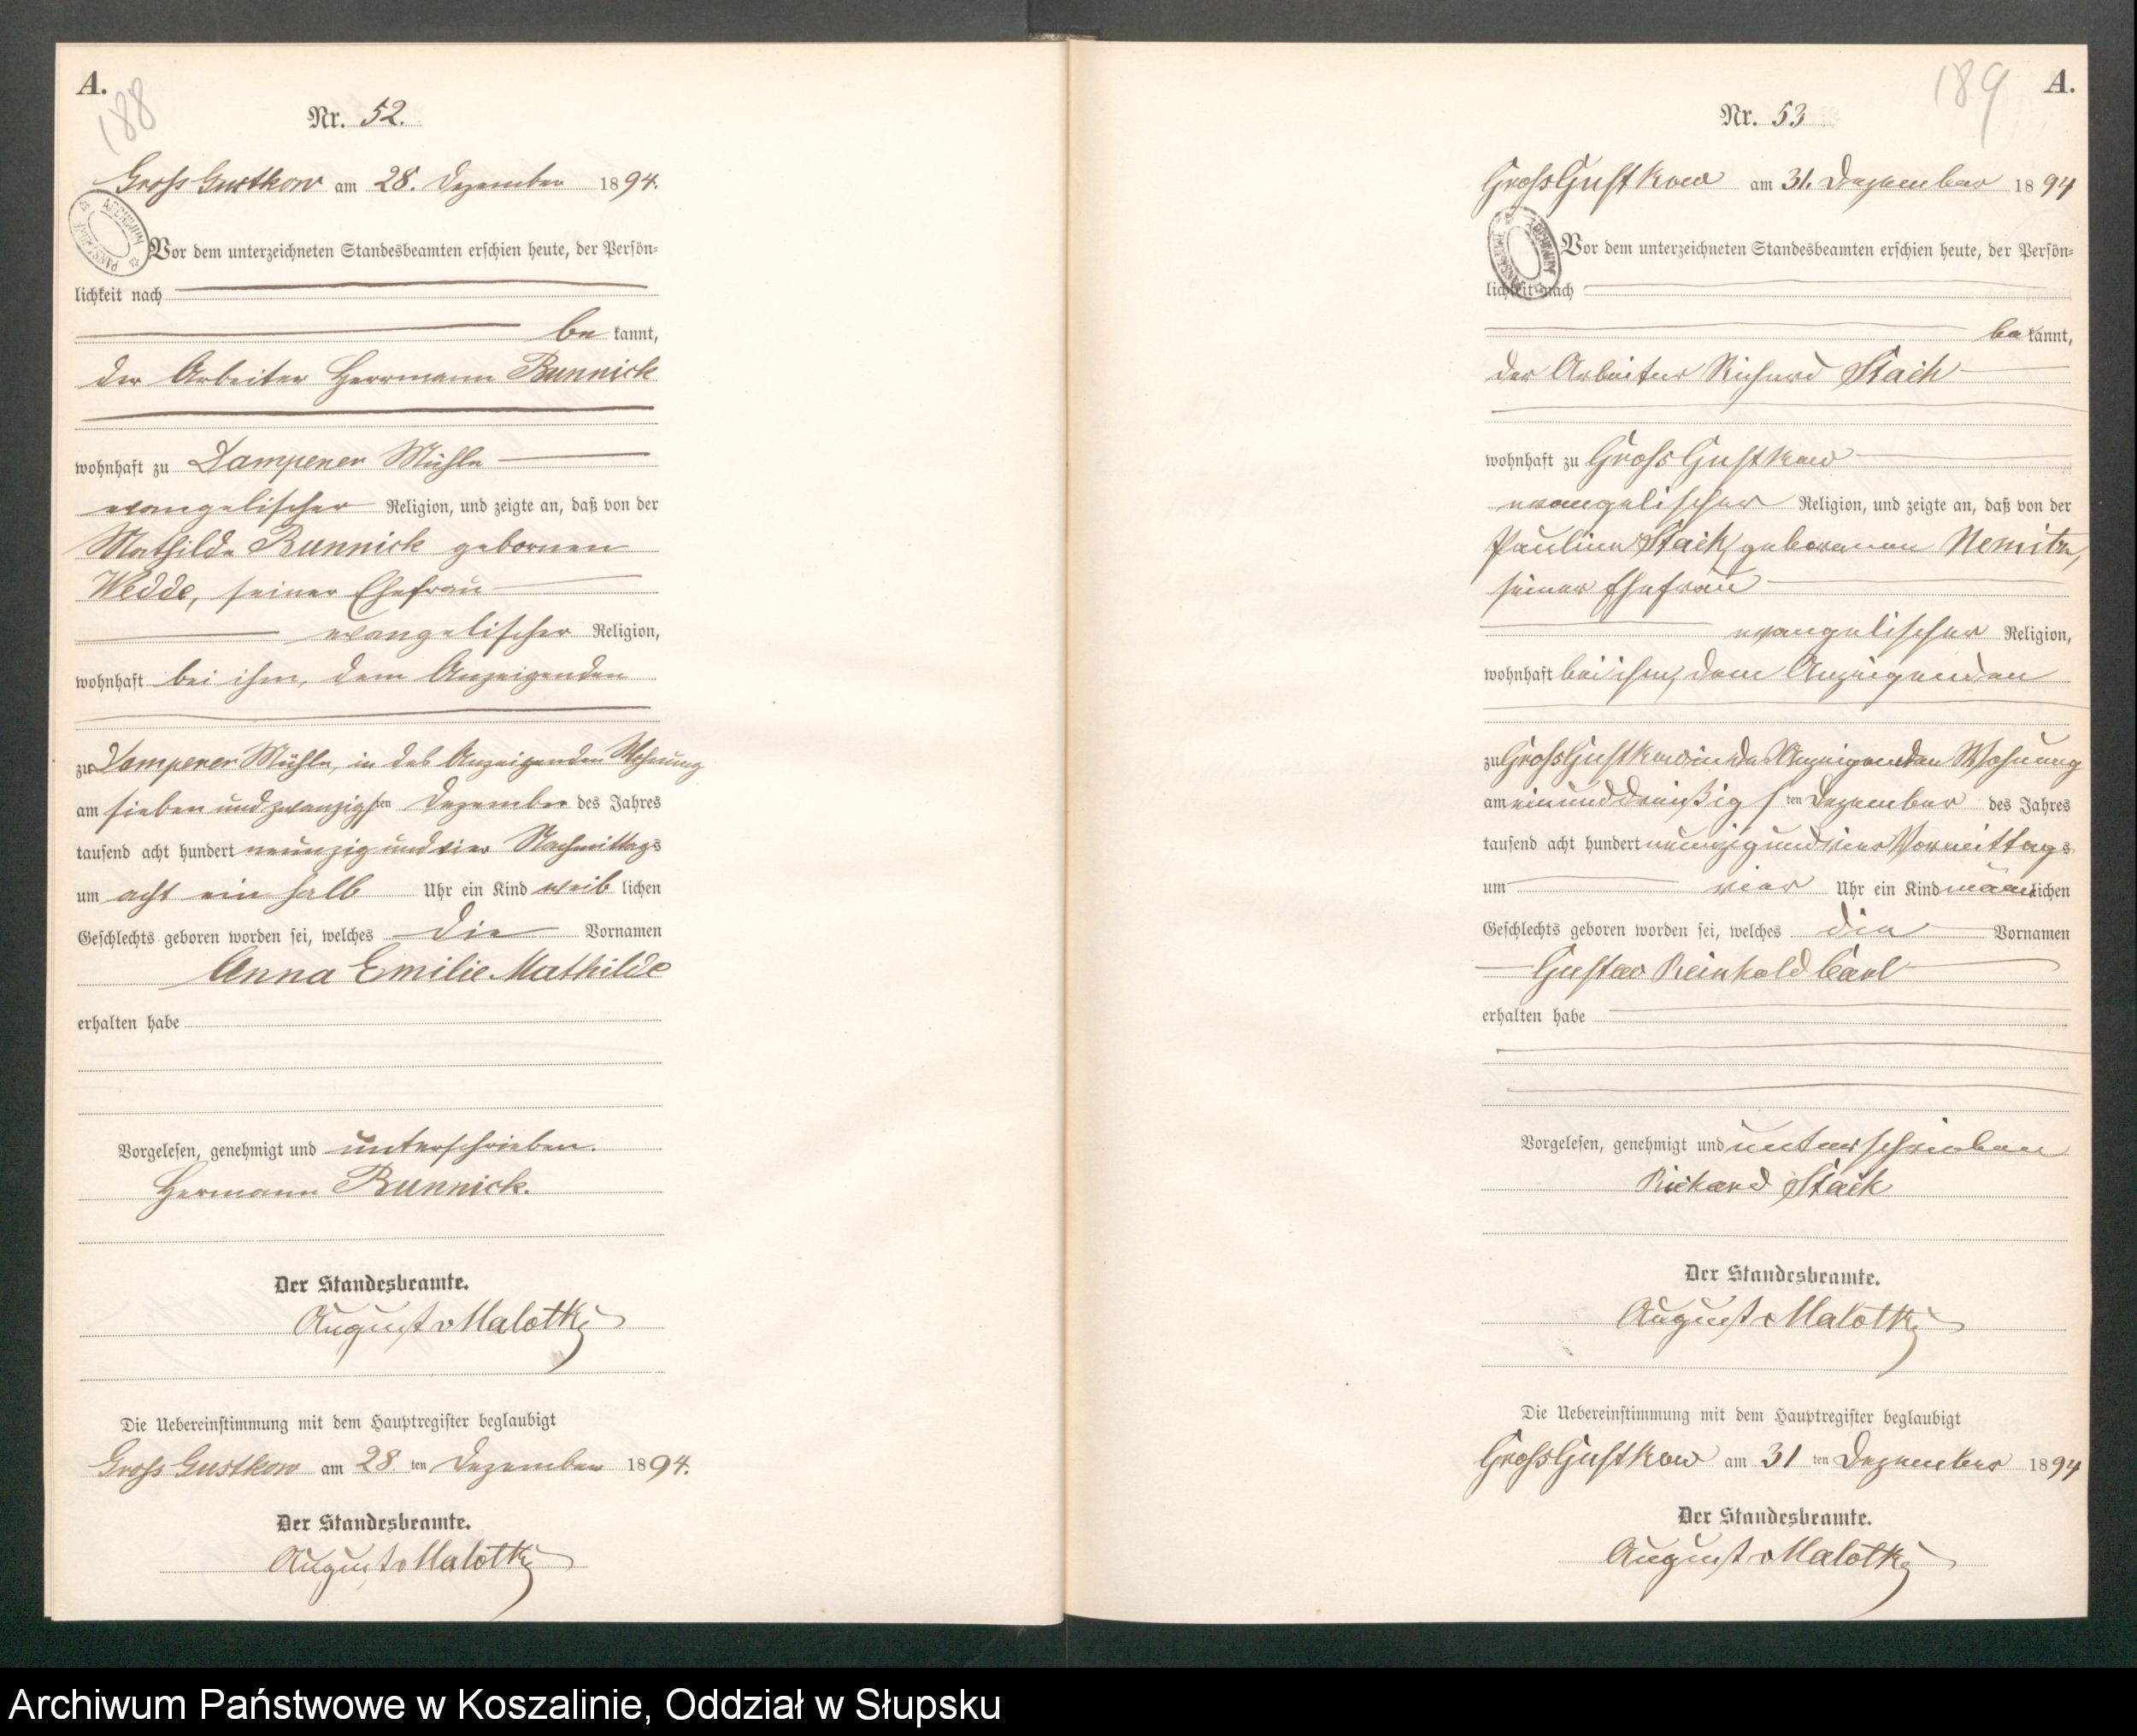 A.
188
Nr. 52.
Gross Gustkow am 28. Dezember 1894.
Vor dem unterzeichneten Standesbeamten erschien heute, der Persön-
lichkeit nach
be kannt,
der Arbeiter Herrmann Bunnick
wohnhaft zu Lampener Mühle
evangelischer Religion, und zeigte an, daß von der
Mathilde Bunnick gebornen
Wedde, seiner Ehefrau
evangelischer Religion,
wohnhaft bei ihm, dem Anzeigenden
zu Lampener Mühle, in des Anzeigenden Wohnung
am sieben und zwanzigsten Dezember des Jahres
tausend acht hundert neunzig und vier Nachmittags
um acht ein halb Uhr ein Kind weib lichen
Geschlechts geboren worden sei, welches die Vornamen
Anna Emilie Mathilde
erhalten habe
Vorgelesen, genehmigt und unterschrieben.
Hermann Bunnick.
Der Standesbeamte.
August v Malottki
Die Uebereinstimmung mit dem Hauptregister beglaubigt
Gross Gustkow am 28. ten Dezember 1894.
Der Standesbeamte.
August v Malottki
189
A.
Nr. 53
Gross Gustkow am 31. Dezember 1894
Vor dem unterzeichneten Standesbeamten erschien heute, der Persön-
lichkeit nach
be kannt,
der Arbeiter Richard Stach
wohnhaft zu Gross Gustkow
evangelischer Religion, und zeigte an, daß von der
Pauline Stach, geborenen Nemitz,
seiner Ehefrau
evangelischer Religion,
wohnhaft bei ihm, dem Anzeigenden
zu Gross Gustkow in des Anzeigenden Wohnung
am einunddreißigsten Dezember des Jahres
tausend acht hundert neunzig und vier Vormittags
um vier Uhr ein Kind männlichen
Geschlechts geboren worden sei, welches die Vornamen
Gustav Reinhold Carl
erhalten habe
Vorgelesen, genehmigt und unterschrieben
Richard Stach
Der Standesbeamte.
August v Malottki
Die Uebereinstimmung mit dem Hauptregister beglaubigt
Gross Gustkow am 31 ten Dezember 1894
Der Standesbeamte.
August v Malottki
Archiwum Państwowe w Koszalinie, Oddział w Słupsku